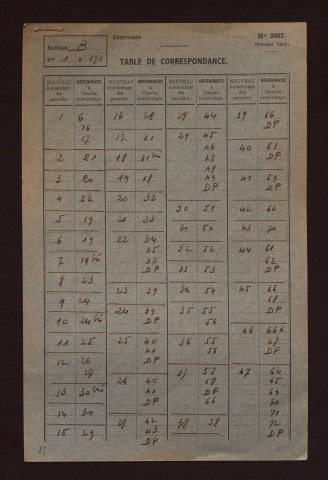 Commune
Nº 3002.
Section B
nº 1 à 270
TABLE DE CORRESPONDANCE.
NOUVEAU numérotage des parcelles. RÉFÉRENCES à l'ancien numérotage.
NOUVEAU numérotage des parcelles. RÉFÉRENCES à l'ancien numérotage.
NOUVEAU numérotage des parcelles. RÉFÉRENCES à l'ancien numérotage.
NOUVEAU numérotage des parcelles. RÉFÉRENCES à l'ancien numérotage.
1 6
16
17
2 21
3 20
4 22
5 19
6 19
7 19 bis
8 23
9 24
10 24 bis
11 25
12 26
27
13 30 bis
14 30
15 29
16 28
17 31
18 31 bis
19 18
20 32
21 33
22 34
35
37
DP
23 39
24 39
DP
25 40
41
DP
26 40
41
DP
27 42
43
DP
28 44
29 45
46
47
48
49
DP
30 51
31 50
32 52
33 53
34 54
35 55
56
36 55
56
37 57
58
DP
66
38 58
39 66
DP
40 63
DP
41 59
DP
42 60
43 70
44 61
62
DP
45 66
68
46
68
DP
47 64
65
69
70
71
72
DP